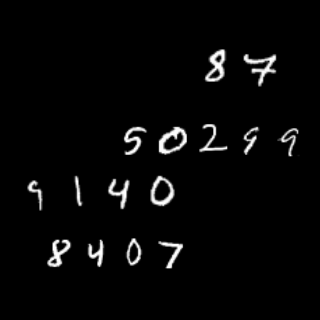 87
50299
9140
8407